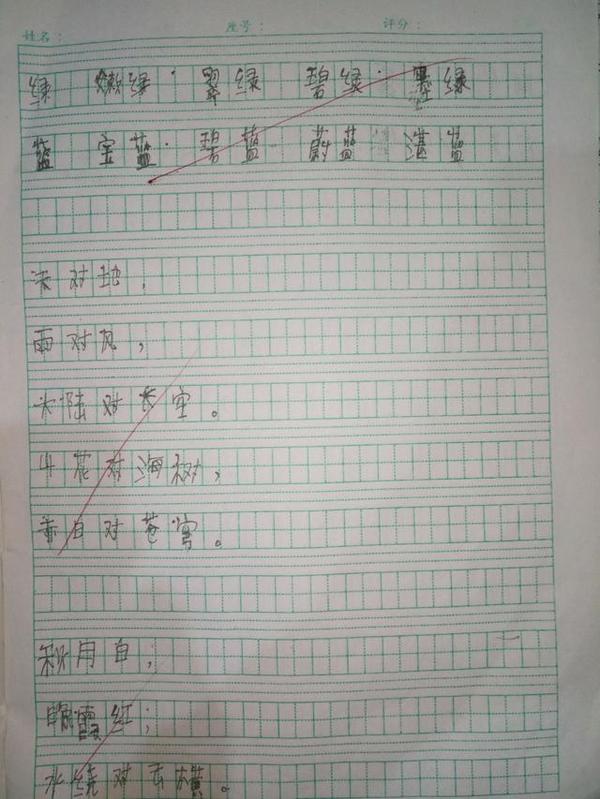 姓名： 座号： 评分：
绿 嫩绿 翠绿 碧绿 墨绿
蓝 宝蓝 碧蓝 蔚蓝 湛蓝
天对地，
雨对风，
大陆对长空。
山花对海树，
赤日对苍穹。
秋月白，
晚霞红，
水绕对云横。